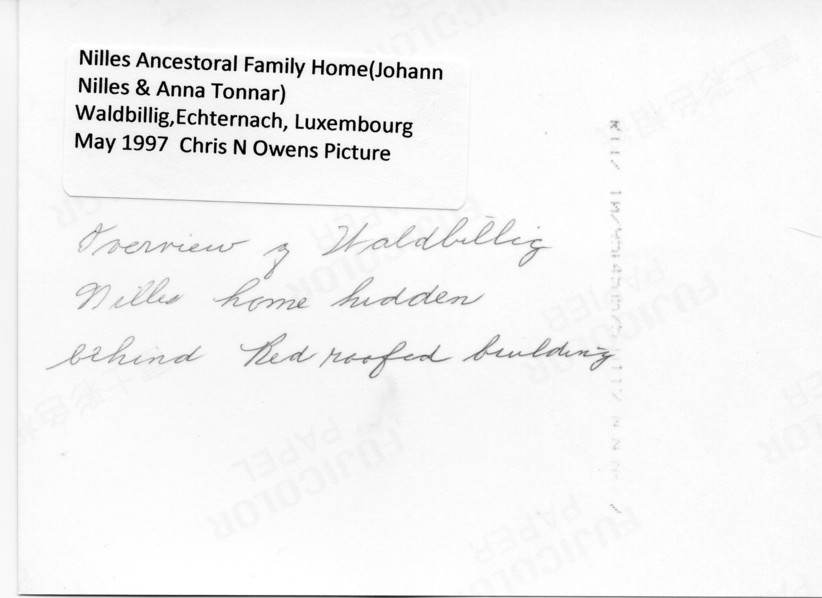 Nilles Ancestoral Family Home(Johann
Nilles & Anna Tonnar)
Waldbillig,Echternach, Luxembourg
May 1997 Chris N Owens Picture
Overview of Waldbillig
Nilles home hidden
behind Red roofed building
FUJICOLOR
PAPER
FUJICOLOR
PAPEL
FUJICOLOR
PAPER